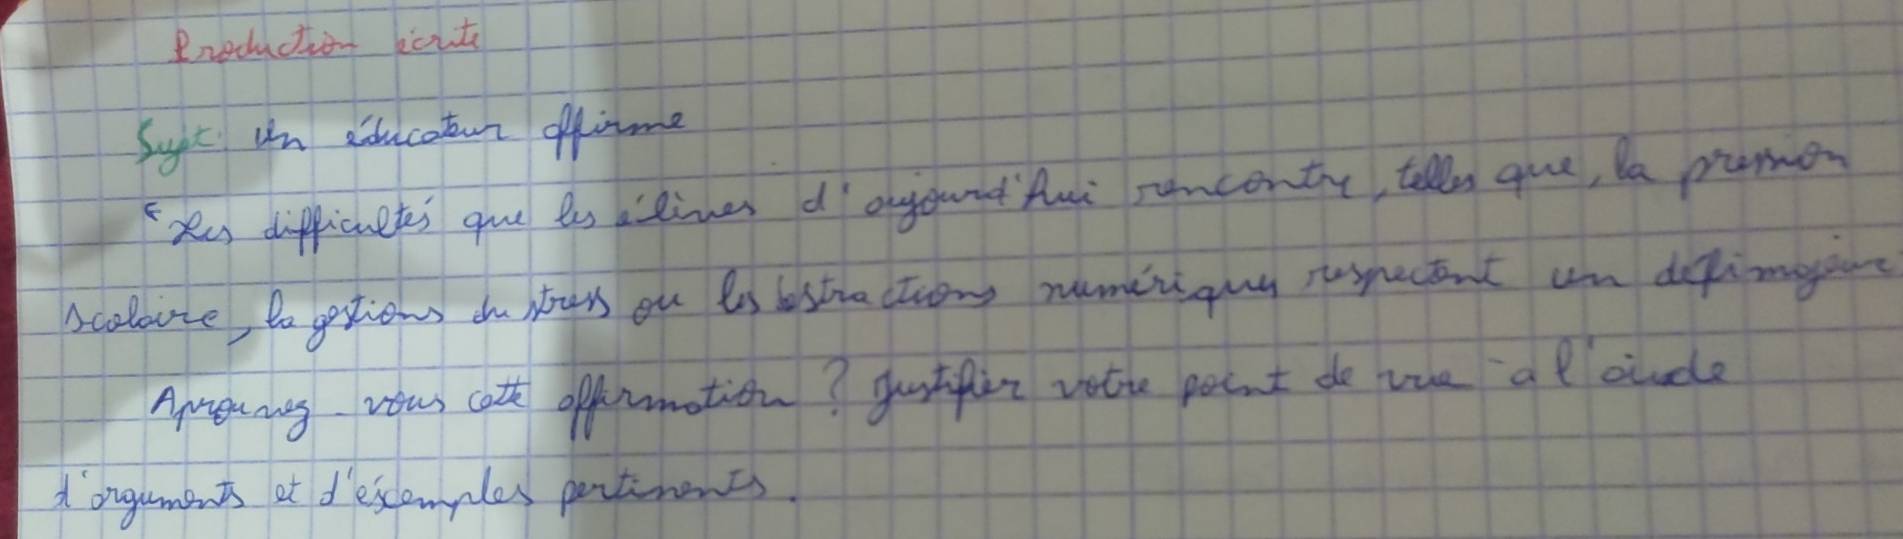 Production écrite
Sujet: Un éducateur affirme
"Les difficultés que les élèves d'aujourd'hui rencontre, telles que, la pression
scolaire, la gestions du stress ou les distractions numériques respectent un défi majeur
Aprouvez-vous cette affirmation ? Justifier votre point de vue a l'aide
d'arguments et d'éxemples pertinents.